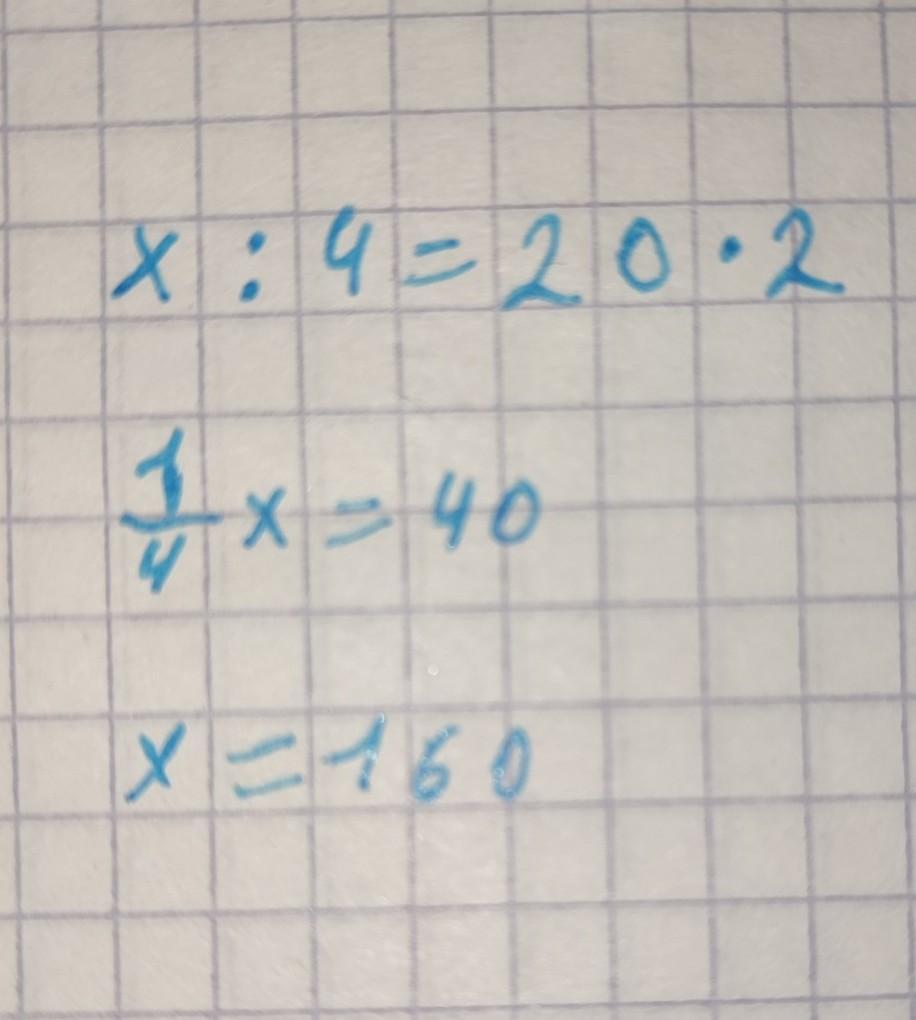 x : 4 = 20 · 2
1/4 x = 40
x = 160